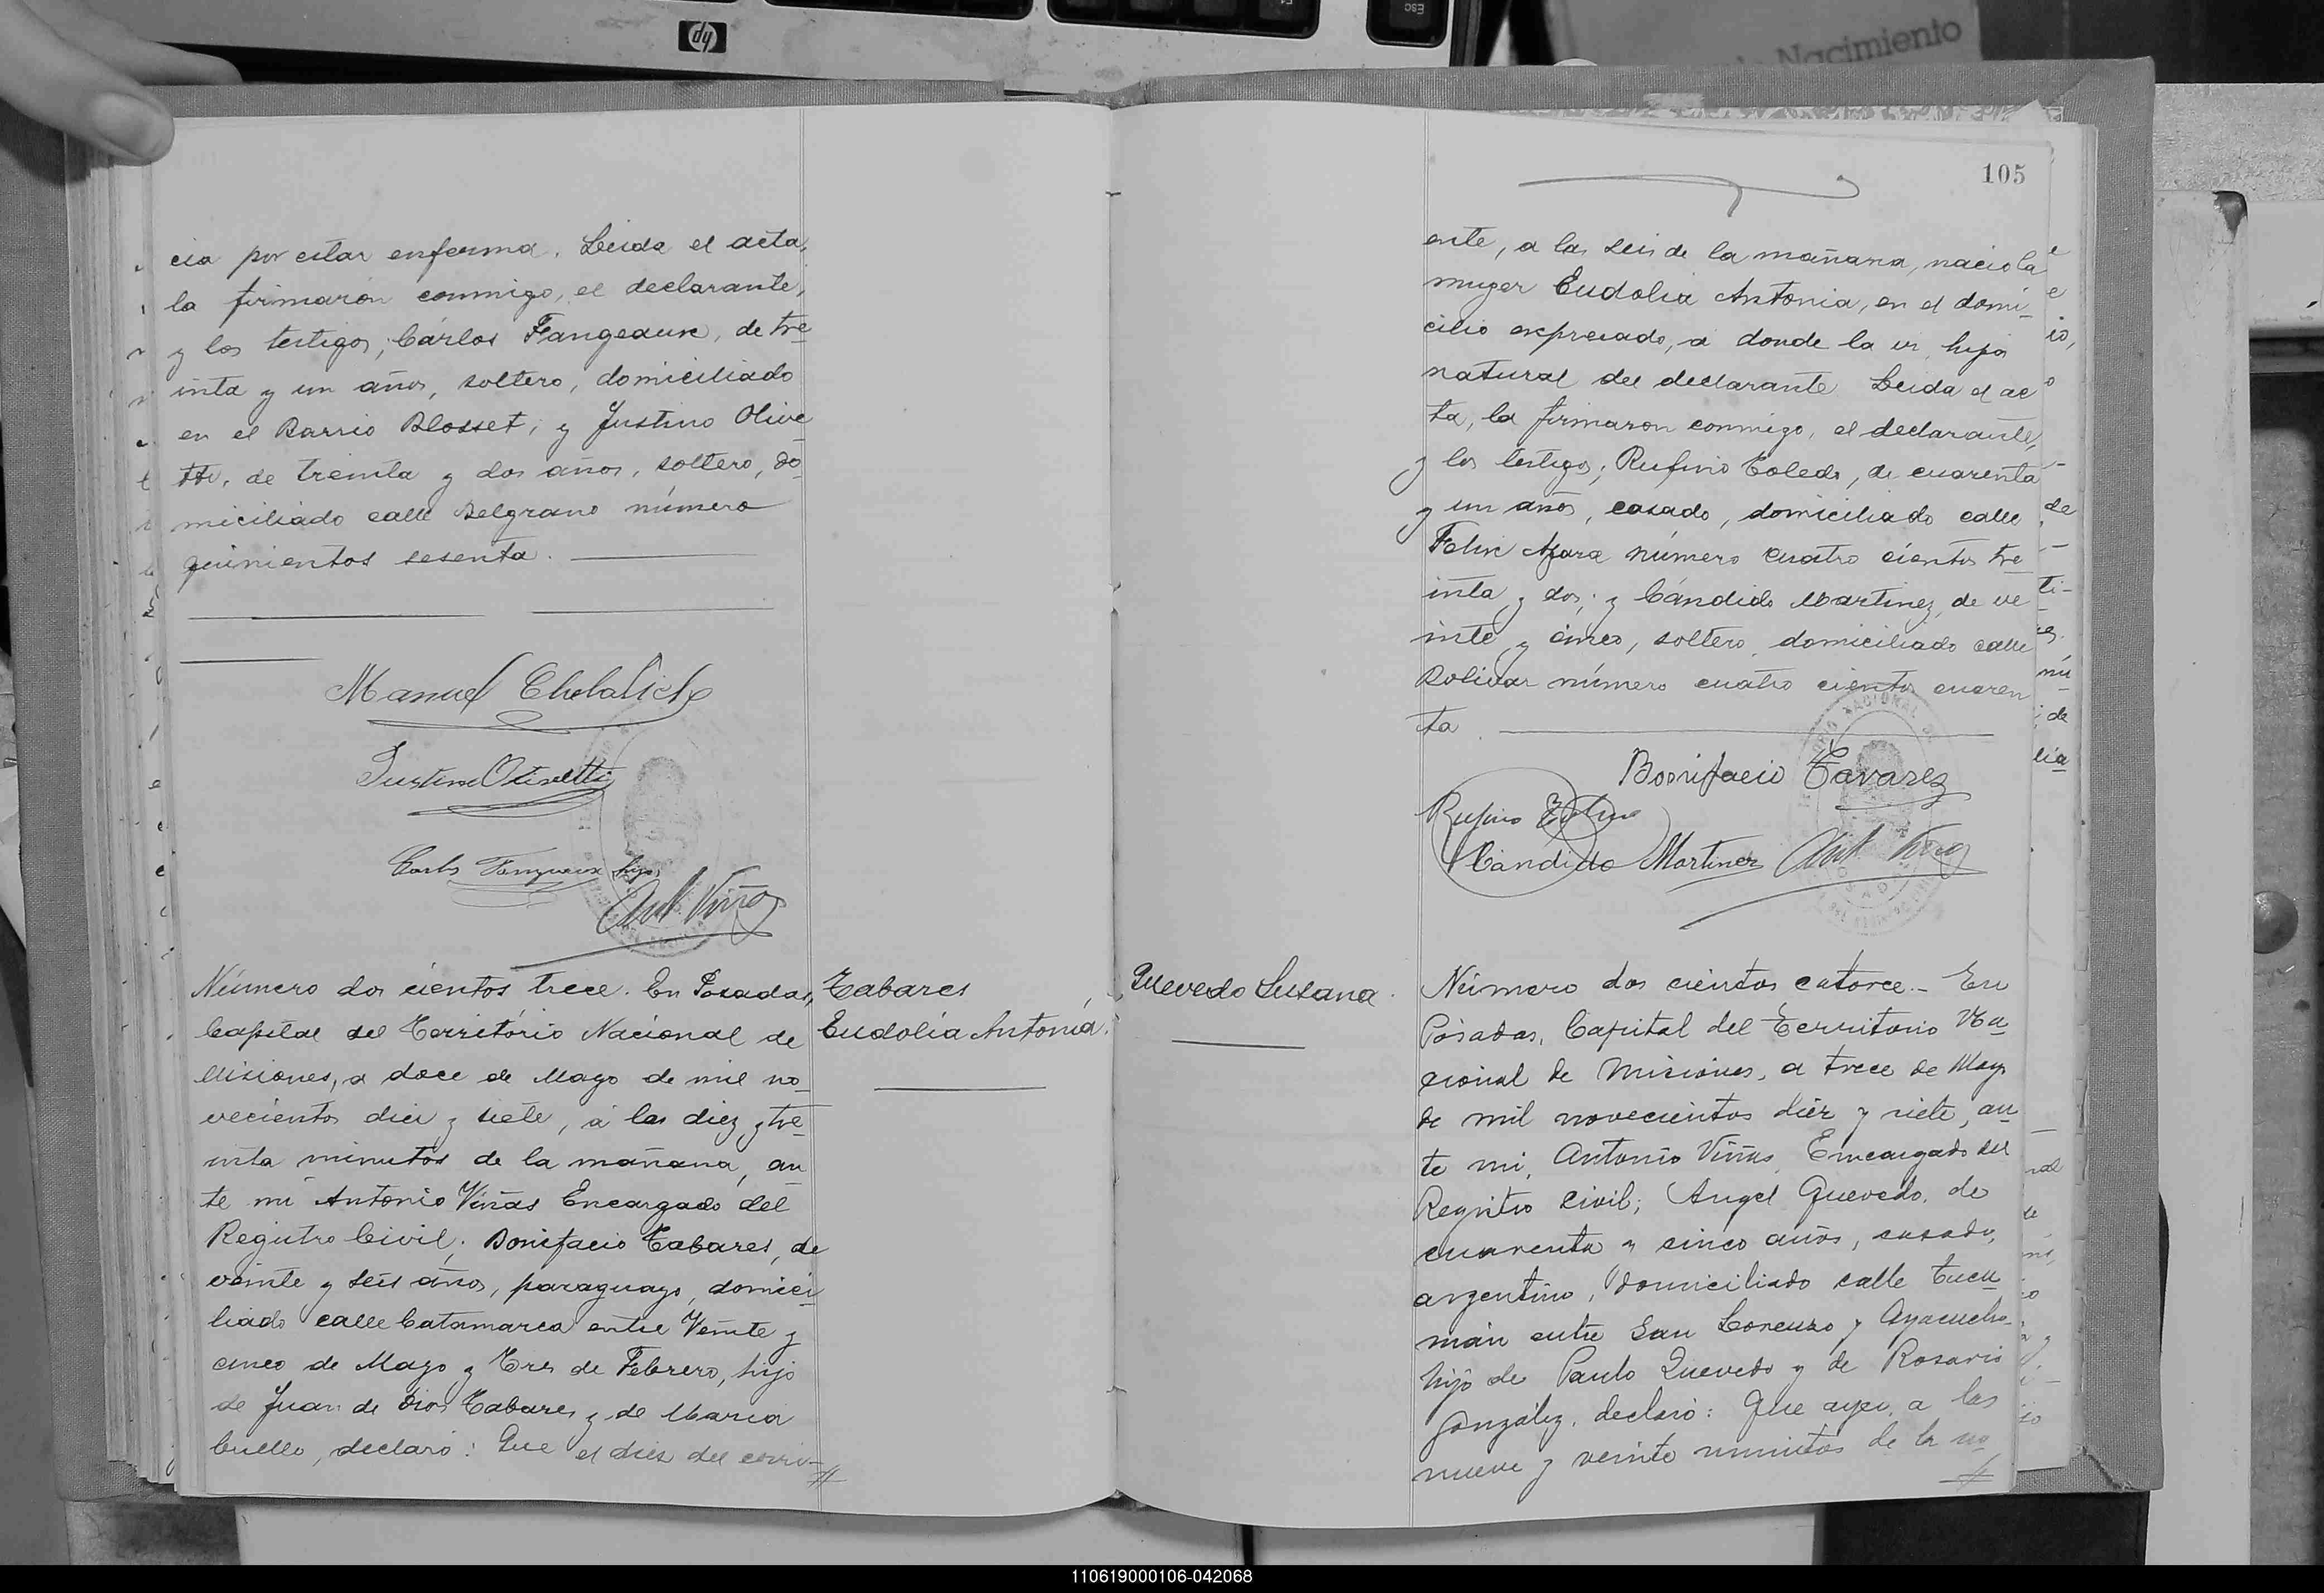 hp
ESC
Nacimiento
105
cia por estar enferma. Leida el acta,
la firmaron conmigo, el declarante,
y los testigos; Cárlos Fangeaux, de tre
inta y un años, soltero, domiciliado
en el Barrio Blosset; y Justino Olive
tti, de treinta y dos años, soltero, do
miciliado calle Belgrano número
quinientos sesenta.
Manuel
Justino Olivetti
Carlos Fangeaux hijo
Ant. Viñas
Número dos cientos trece. En Posadas,
Capital del Territorio Nacional de
Misiones, a doce de Mayo de mil no
vecientos diez y siete, á las diez y tre
inta minutos de la mañana, an
te mi Antonio Viñas Encargado del
Registro Civil; Bonifacio Tabares, de
veinte y seis años, paraguayo, domici
liado calle Catamarca entre Veinte y
cinco de Mayo y Tres de Febrero, hijo
de Juan de Dios Tabares y de Maria
Cuello, declaró: Que el diez del corri-
Tabares
Eudolia Antonia.
ente, a las seis de la mañana, nació la
muger Eudolia Antonia, en el domi
cilio expresado, a donde la vi, hija
natural del declarante. Leida el ac
ta, la firmaron conmigo, el declarante,
y los testigos; Rufino Toledo, de cuarenta
y un años, casado, domiciliado calle
Felix Azara número cuatro cientos tre
inta y dos; y Cándido Martinez, de ve
inte y cinco, soltero, domiciliado calle
Bolivar número cuatro cientos cuaren
ta
Bonifacio Tavarez
Rufino Toledo
Cándido Martinez Ant. Viñas
Quevedo Susana.
Número dos cientos catorce.- En
Posadas, Capital del Territorio Na
cional de Misiones, a trece de Mayo
de mil novecientos diez y siete, an
te mi, Antonio Viñas, Encargado del
Registro Civil; Angel Quevedo, de
cuarenta y cinco años, casado,
argentino, domiciliado calle Tucu
mán entre San Lorenzo y Ayacucho
hijo de Paulo Quevedo y de Rosario
González, declaró: Que ayer, a las
nueve y veinte minutos de la no
110619000106-042068